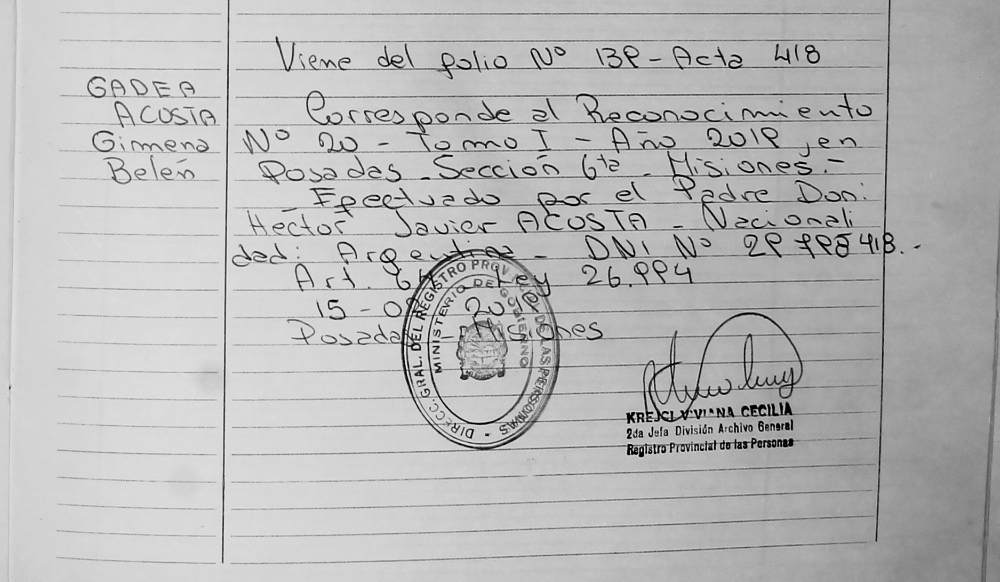 GADEA
ACOSTA
Gimena
Belén
Viene del folio Nº 139 - Acta 418
Corresponde al Reconocimiento
Nº 20 - Tomo I - Año 2019, en
Posadas - Sección 6ta - Misiones.-
- Efectuado por el Padre Don:
Hector Javier ACOSTA - Nacionali
dad: Argentina - DNI Nº 29.998.418.-
Art. Ley 26.994
15 - 2019
Posadas - Misiones
DIRECC. GRAL. DEL REGISTRO PROV. DE LAS PERSONAS
MINISTERIO DE GOBIERNO
KREJCI VIVIANA CECILIA
2da Jefa División Archivo General
Registro Provincial de las Personas